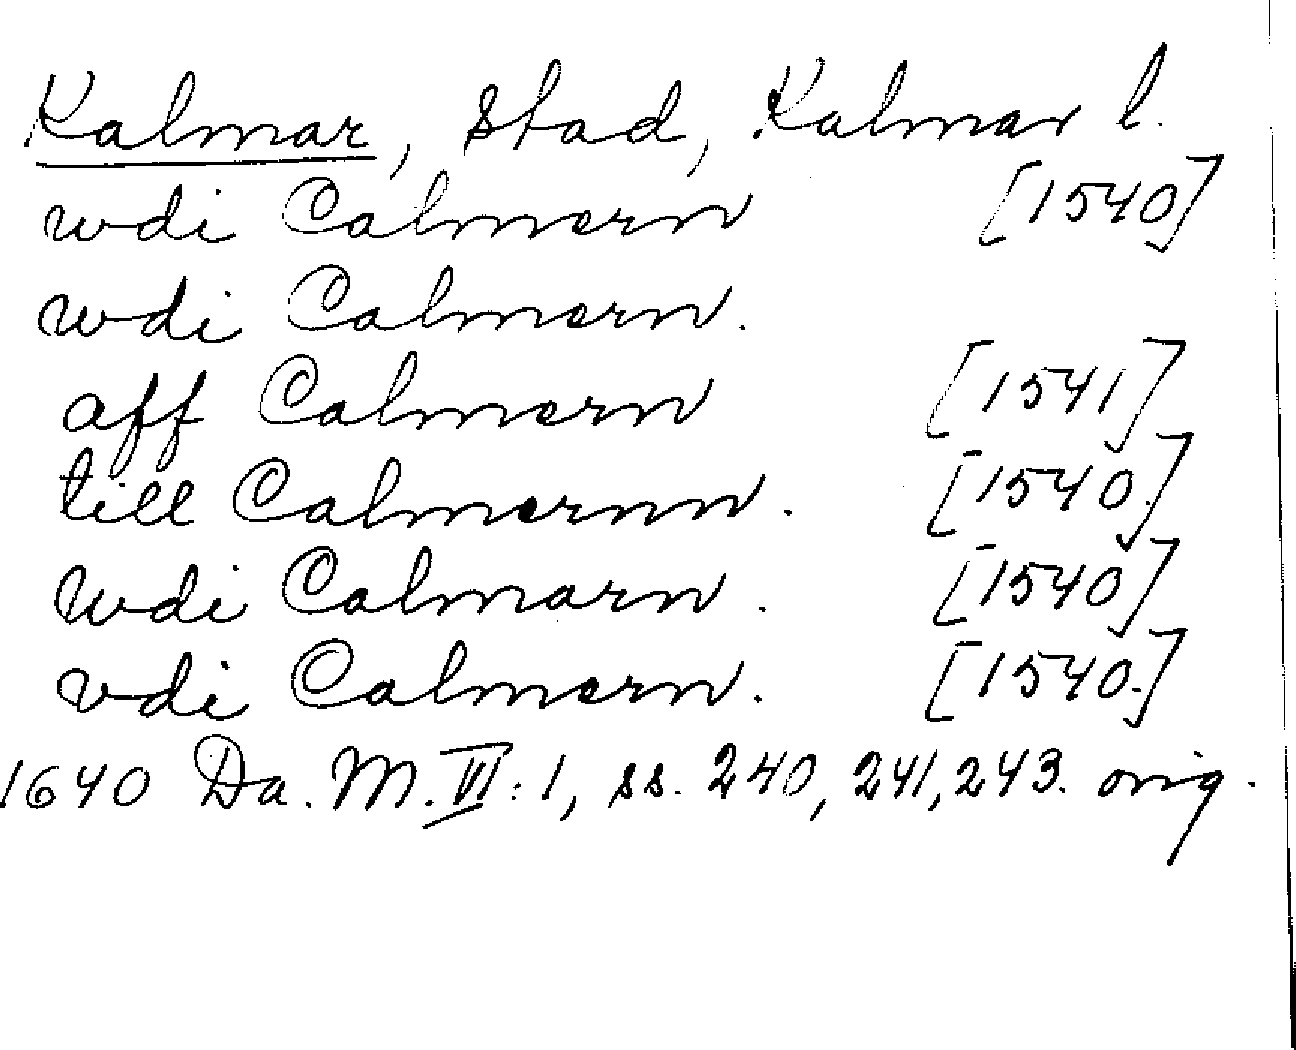 Kalmar, stad, Kalmar l.
wdi Calmern [1540]
wdi Calmern.
aff Calmern [1541]
till Calmernn. [1540.]
wdi Calmarn. [1540]
vdi Calmern. [1540.]
1640 Da. M. VI: 1, ss. 240, 241, 243. orig.